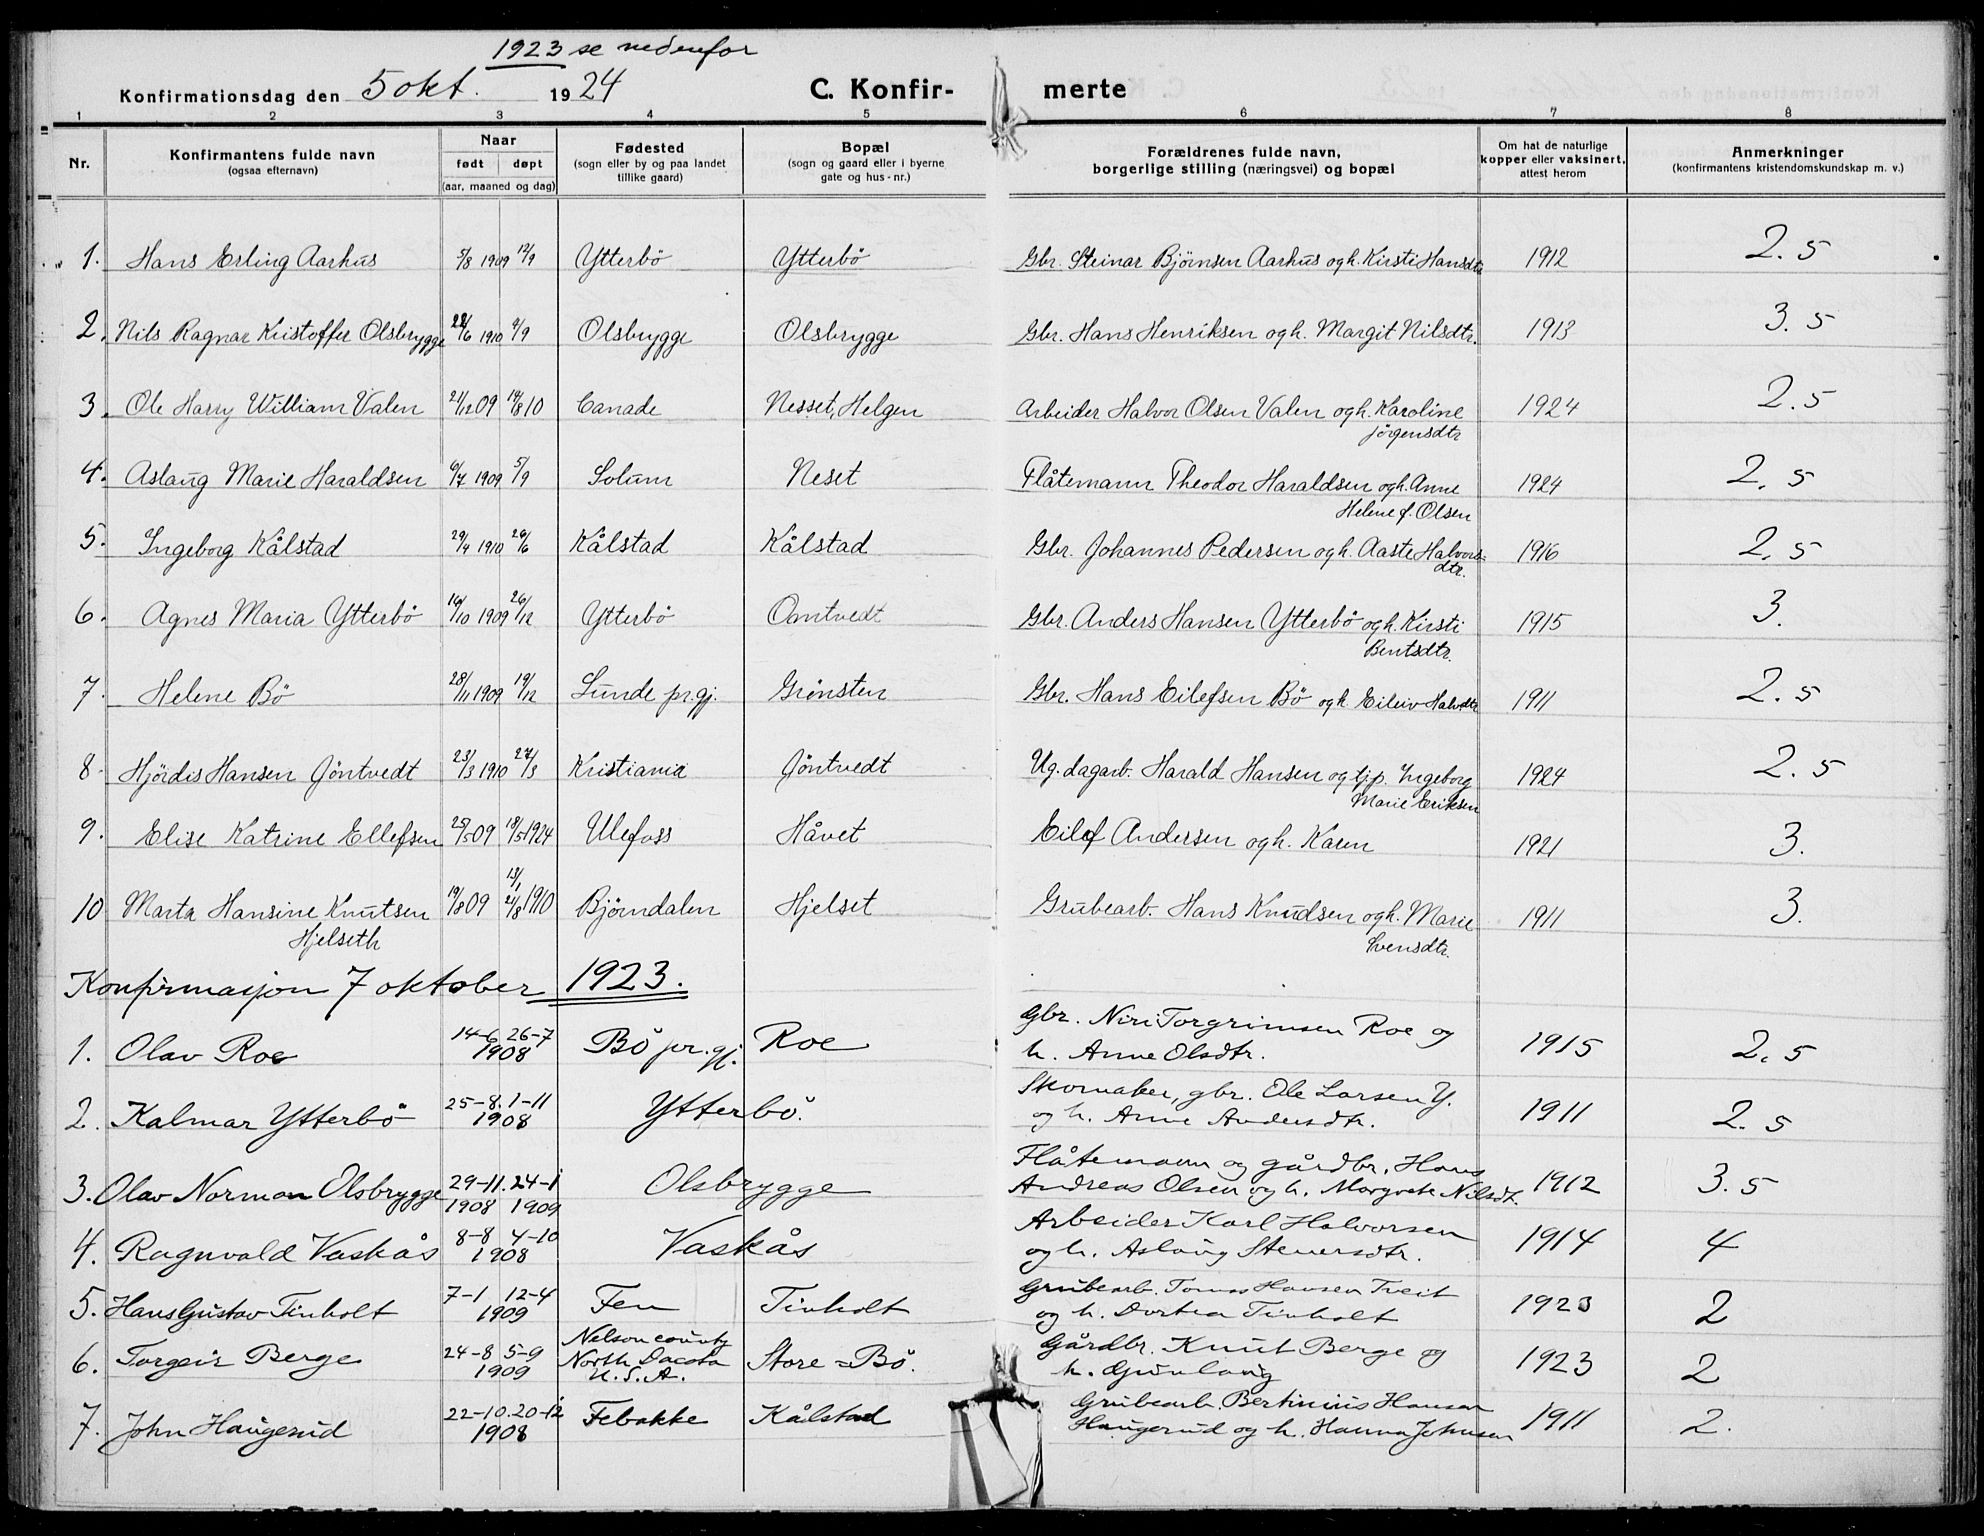 1923 se nedenfor
Konfirmationsdag den 5 okt. 1924 C. Konfir- merte
1 2 3 4 5 6 7 8
Nr. Konfirmantens fulde navn (ogsaa efternavn) Naar født døpt (aar, maaned og dag) Fødested (sogn eller by og paa landet tillike gaard) Bopæl (sogn og gaard eller i byerne gate og hus-nr.) Forældrenes fulde navn, borgerlige stilling (næringsvei) og bopæl Om hat de naturlige kopper eller vaksinert, attest herom Anmerkninger (konfirmantens kristendomskundskap m. v.)
1. Hans Erling Aarhus 5/8 1909 12/9 Ytterbö Ytterbö Gbr. Steinar Bjørnsen Aarhus og h. Kirsti Hansdtr 1912 2.5
2. Nils Ragnar Kristoffer Olsbrygge 22/6 1910 9/9 Olsbrygge Olsbrygge Gbr. Hans Henriksen og h. Margit Nilsdtr. 1913 3.5
3. Ole Harry William Valen 21/12 09 19/8 10 Canade Nesset, Helgen Arbeider Halvor Olsen Valen og h. Karoline 1924 2.5
Jörgensdtr
4. Aslaug Marie Haraldsen 6/7 1909 5/9 Solum Neset Flåtemann Theodor Haraldsen og h. Anne 1924 2.5
Helene f. Olsen
5. Ingeborg Kålstad 29/4 1910 26/6 Kålstad Kålstad Gbr. Johannes Pedersen og h. Aaste Halvors- 1916 2.5
dtr.
6. Agnes Maria Ytterbö 16/10 1909 26/12 Ytterbö Omtvedt Gbr. Anders Hansen Ytterbö og h. Kirsti 1915 3.
Bentsdtr.
7. Helene Bö 28/11 1909 19/12 Lunde pr.gj. Grönsten Gbr. Hans Eilefsen Bö og h. Eileiv Halvdtr 1911 2.5
8. Hjördis Hansen Jöntvedt 23/3 1910 27/3 Kristiania Jöntvedt Ug. dagarb. Harald Hansen og tjp. Ingeborg 1924 2.5
Marie Eriksen
9. Elise Katrine Ellefsen 25/5 09 18/5 1924 Ulefoss Håvet Eilef Andersen og h. Karen 1921 3.
13/1
10 Marta Hansine Knutsen 19/8 09 21/8 1910 Björndalen Hjelset Grubearb. Hans Knudsen og h. Marie 1911 3.
Hjelseth Svensdtr.
Konfirmasjon 7 oktober 1923.
1. Olav Roe 14-6 26-7 1908 Bö pr.gj. Roe Gbr. Niri Torgrimsen Roe og 1915 2.5
h. Anne Olsdtr.
2. Kalmar Ytterbö 25-8. 1-11 1908 Ytterbö. Skomaker, gbr. Ole Larsen Y. 1911 2.5
og h. Anne Andersdtr.
3. Olav Norman Olsbrygge 29-11. 24-1 1908 1909 Olsbrygge Flåtemann og gårdbr. Hans 1912 3.5
Andreas Olsen og h. Margrete Nilsdt.
4. Ragnvald Vaskås 8-8 4-10 1908 Vaskås Arbeider Karl Halvorsen 1914 4
og h. Aslaug Stenersdtr.
5. Hans Gustav Tinholt 7-1 12-4 1909 Fen Tinholt Grubearb. Tomas Hansen Tveit 1923 2
og h. Dortea Tinholt
6. Torgeir Berge 24-8 5-9 1909 Nelson county North Dacota U.S.A. Store=Bö. Gårdbr. Knut Berge og 1923 2
h. Gunlaug
7. John Haugerud 22-10. 20-12 1908 Febakke Kålstad Grubearb. Bertinius Hansen 1911 2.
Haugerud og h. Hanna Johnsen